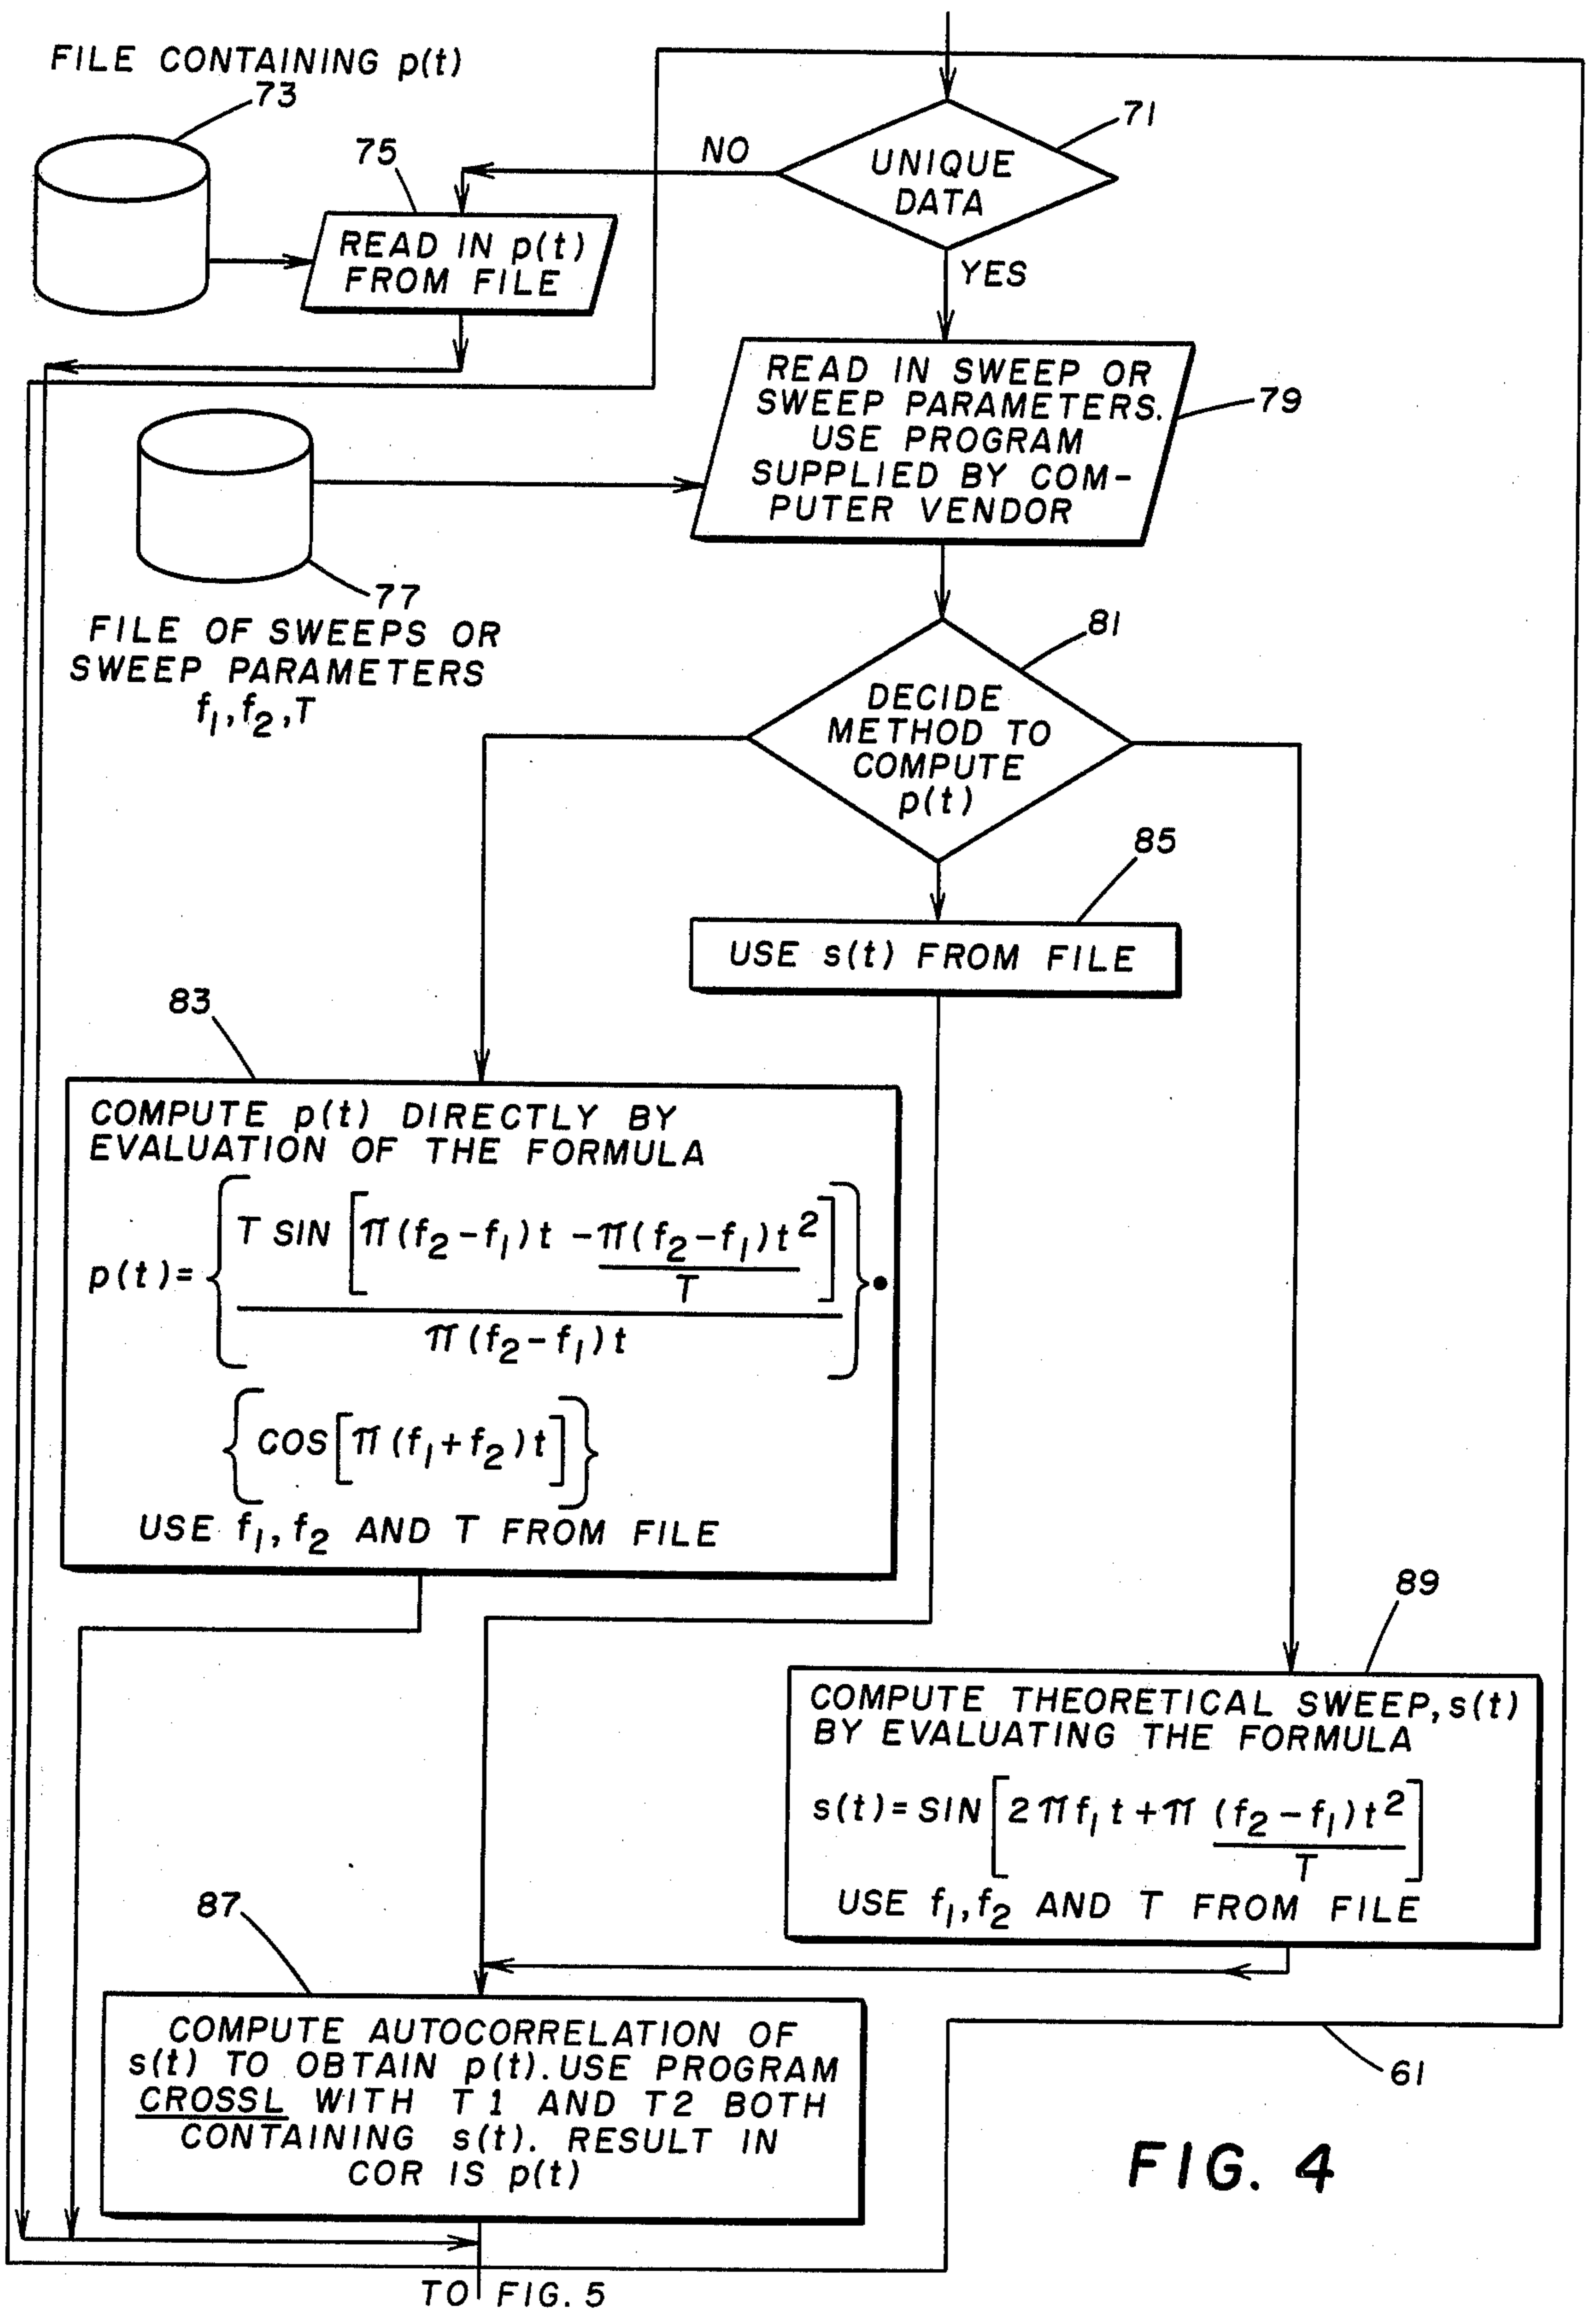 FILE CONTAINING p(t)
73
71
75
NO
UNIQUE
DATA
READ IN p(t)
FROM FILE
YES
READ IN SWEEP OR
SWEEP PARAMETERS.
USE PROGRAM
SUPPLIED BY COM-
PUTER VENDOR
79
77
FILE OF SWEEPS OR
SWEEP PARAMETERS
f₁, f₂, T
81
DECIDE
METHOD TO
COMPUTE
p(t)
85
USE s(t) FROM FILE
83
COMPUTE p(t) DIRECTLY BY
EVALUATION OF THE FORMULA
p(t) = { T SIN [π(f₂-f₁)t - π(f₂-f₁)t²/T] / π(f₂-f₁)t } •
{COS[π(f₁+f₂)t]}
USE f₁, f₂ AND T FROM FILE
89
COMPUTE THEORETICAL SWEEP, s(t)
BY EVALUATING THE FORMULA
s(t) = SIN [2πf₁t + π (f₂-f₁)t²/T]
USE f₁, f₂ AND T FROM FILE
87
COMPUTE AUTOCORRELATION OF
s(t) TO OBTAIN p(t). USE PROGRAM
CROSSL WITH T1 AND T2 BOTH
CONTAINING s(t). RESULT IN
COR IS p(t)
61
FIG. 4
TO FIG. 5